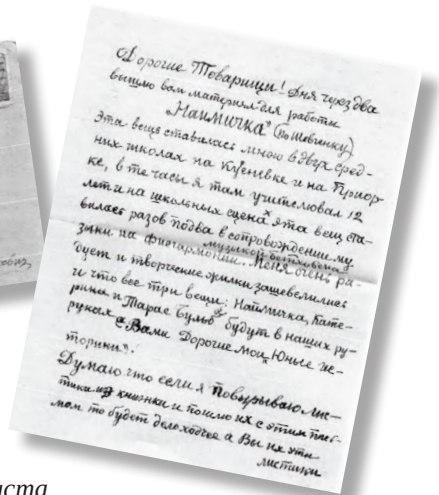 Дорогие Товарищи! Дня через два
вышлю вам материал для работы
„Наймичка" (по Шевченку)
Эта вещь ставилась мною в двух сред-
них школах на Куренивке и на Приор-
ке, в те часы я там учителювал 12
лет и на школьных сценах эта вещ ста-
вилась разов по два в сопровождение му
музикой бетховена
зыки на фисгармонии. Меня очень ра-
дует и творческие жилки зашевелились
и что все три вещи: Наймичка, Кате-
рина и Тарас Бульб будут в наших ру-
руках с Вами Дорогие мои Юные ис-
торики".
Думаю что если я повырываю лис-
тики из книжки и пошлю их с этим пись-
мом то будет дело ходчее а Вы их эти
листики
уста